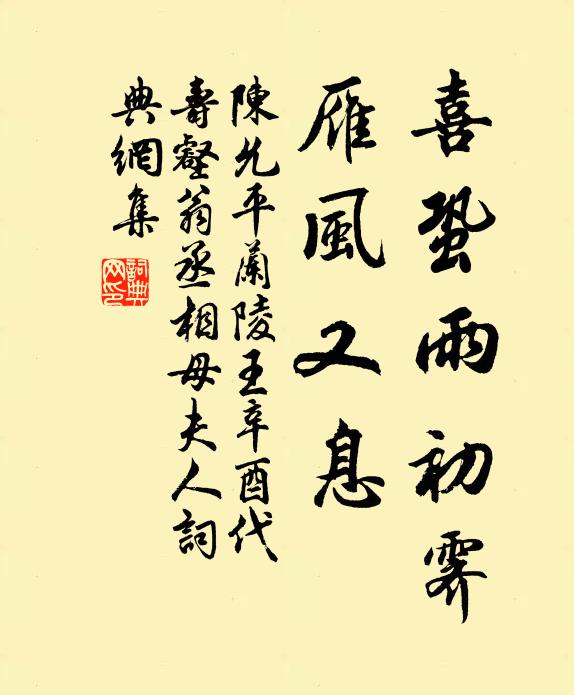 喜蛩雨初霽
雁風又息
陳允平蘭陵王辛酉代
壽壑翁丞相母夫人詞
典網集
詞典網印